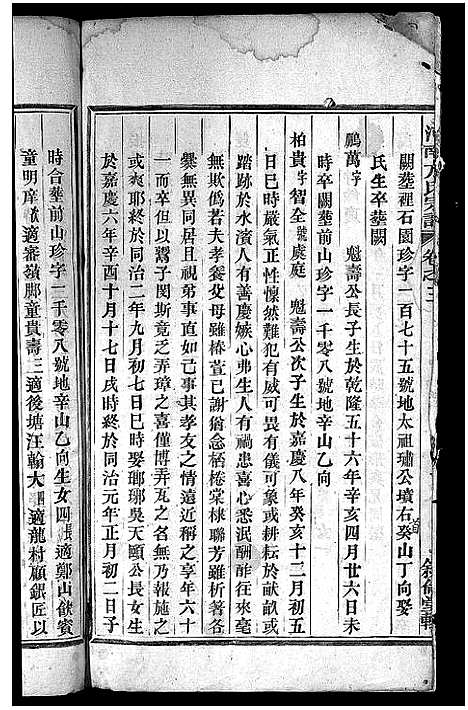 闕塟裡石園珍字一百七十五號地太祖璛公墳右癸山丁向娶
氏生卒塟闕
鵬萬字 魁壽公長子生於乾隆五十六年辛亥四月廿六日未
時卒闕塟前山珍字一千零八號地辛山乙向
柏貴字智全號虞庭 魁壽公次子生於嘉慶八年癸亥十二月初五
日巳時嚴氣正性懍然難犯有威可畏有儀可象或耕耘於畎畝或
踏跡於水濱人有善慶嫉心弗生人有禍患喜心悉泯酬酢往來毫
無欺僞若夫孝養父母雖椿萱已謝猶念桮棬棠棣聯芳雖析箸各
無異同居且視弟事直如己事其孝友之情遠近稱之享年六十
一而卒但以鬻子閔斯竟乏弄璋之喜僅博弄瓦之名無乃報施之
或爽耶終於同治二年九月初七日巳時娶瑯琊吳天頤公長女生
於嘉慶六年辛酉十月十七日戌時終於同治元年正月初二日子
時合塟前山珍字一千零八號地辛山乙向生女四長適鄭山飲賓
童明庠次適審嶺脚童貴壽三適後塘汪翰大四適龍村顧銀匠以
南方氏宗譜 卷之三